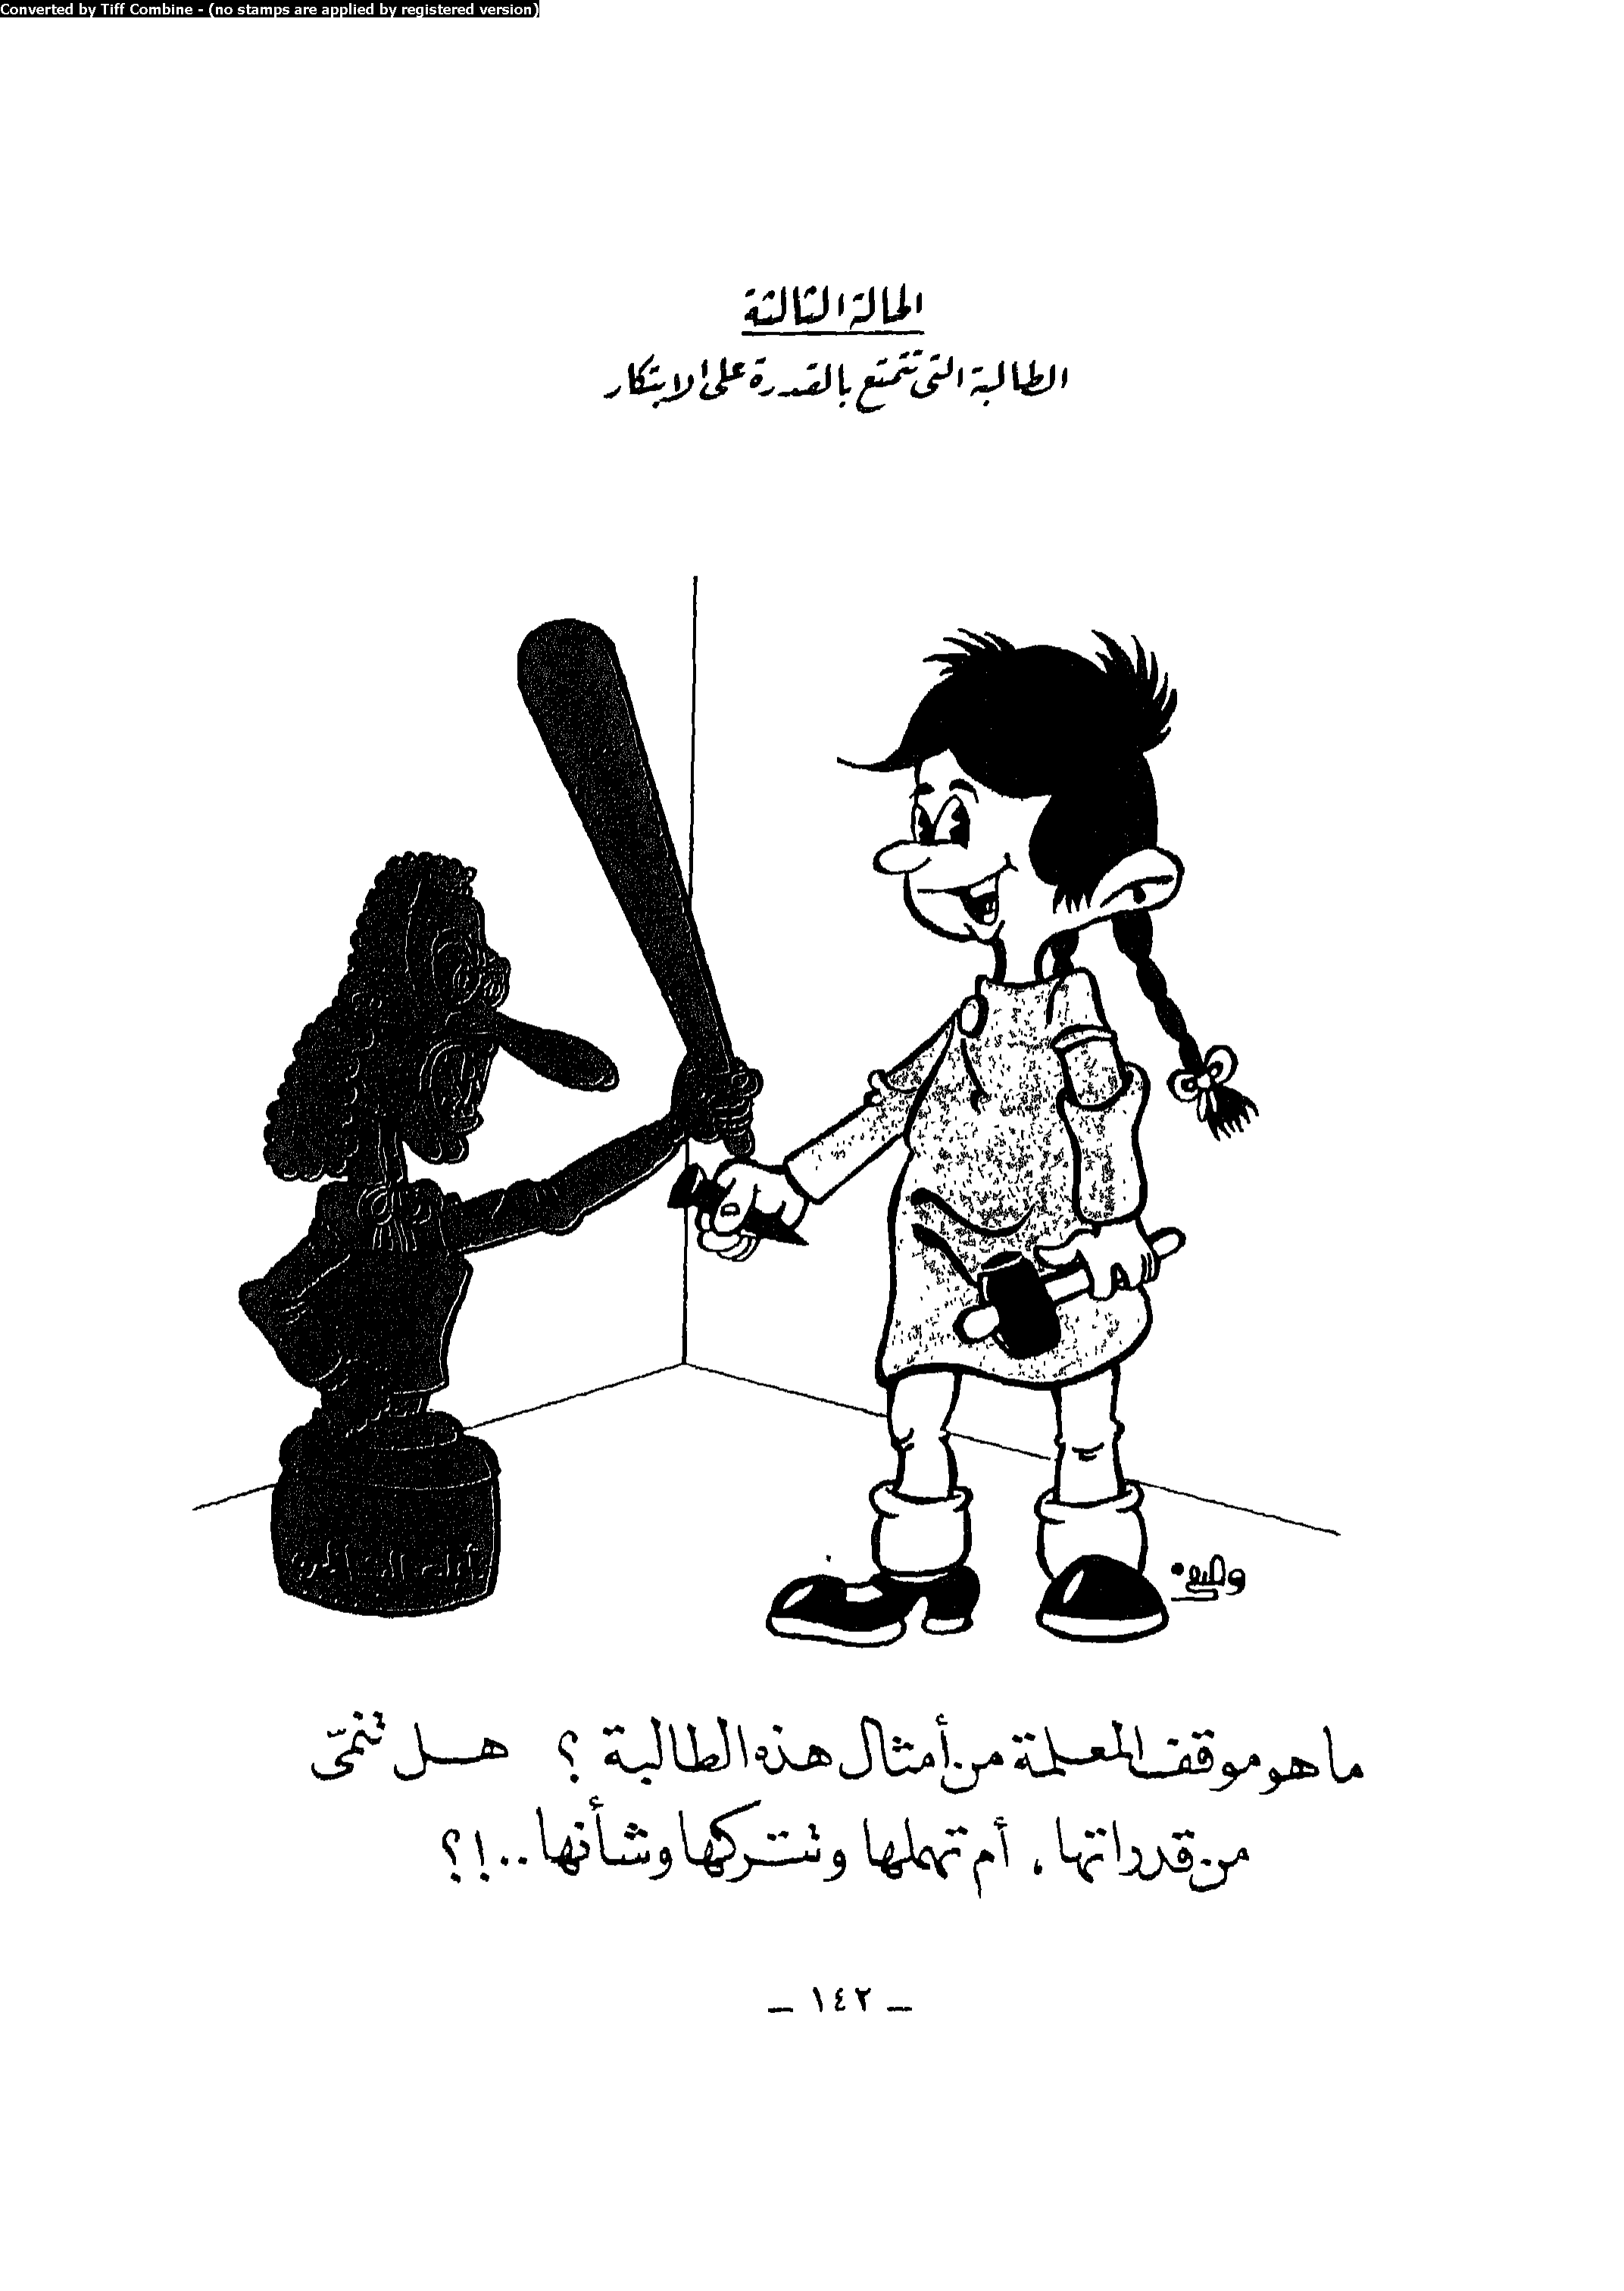 Converted by Tiff Combine - (no stamps are applied by registered version)
الحالة الثالثة
الطالبة التى تتمتع بالقدرة على الابتكار
وليد
ما هو موقف المعلمة من أمثال هذه الطالبة ؟ هل تنمّى
من قدراتها ، أم تهملها وتتركها وشأنها ..!؟
_ ١٤٢ _